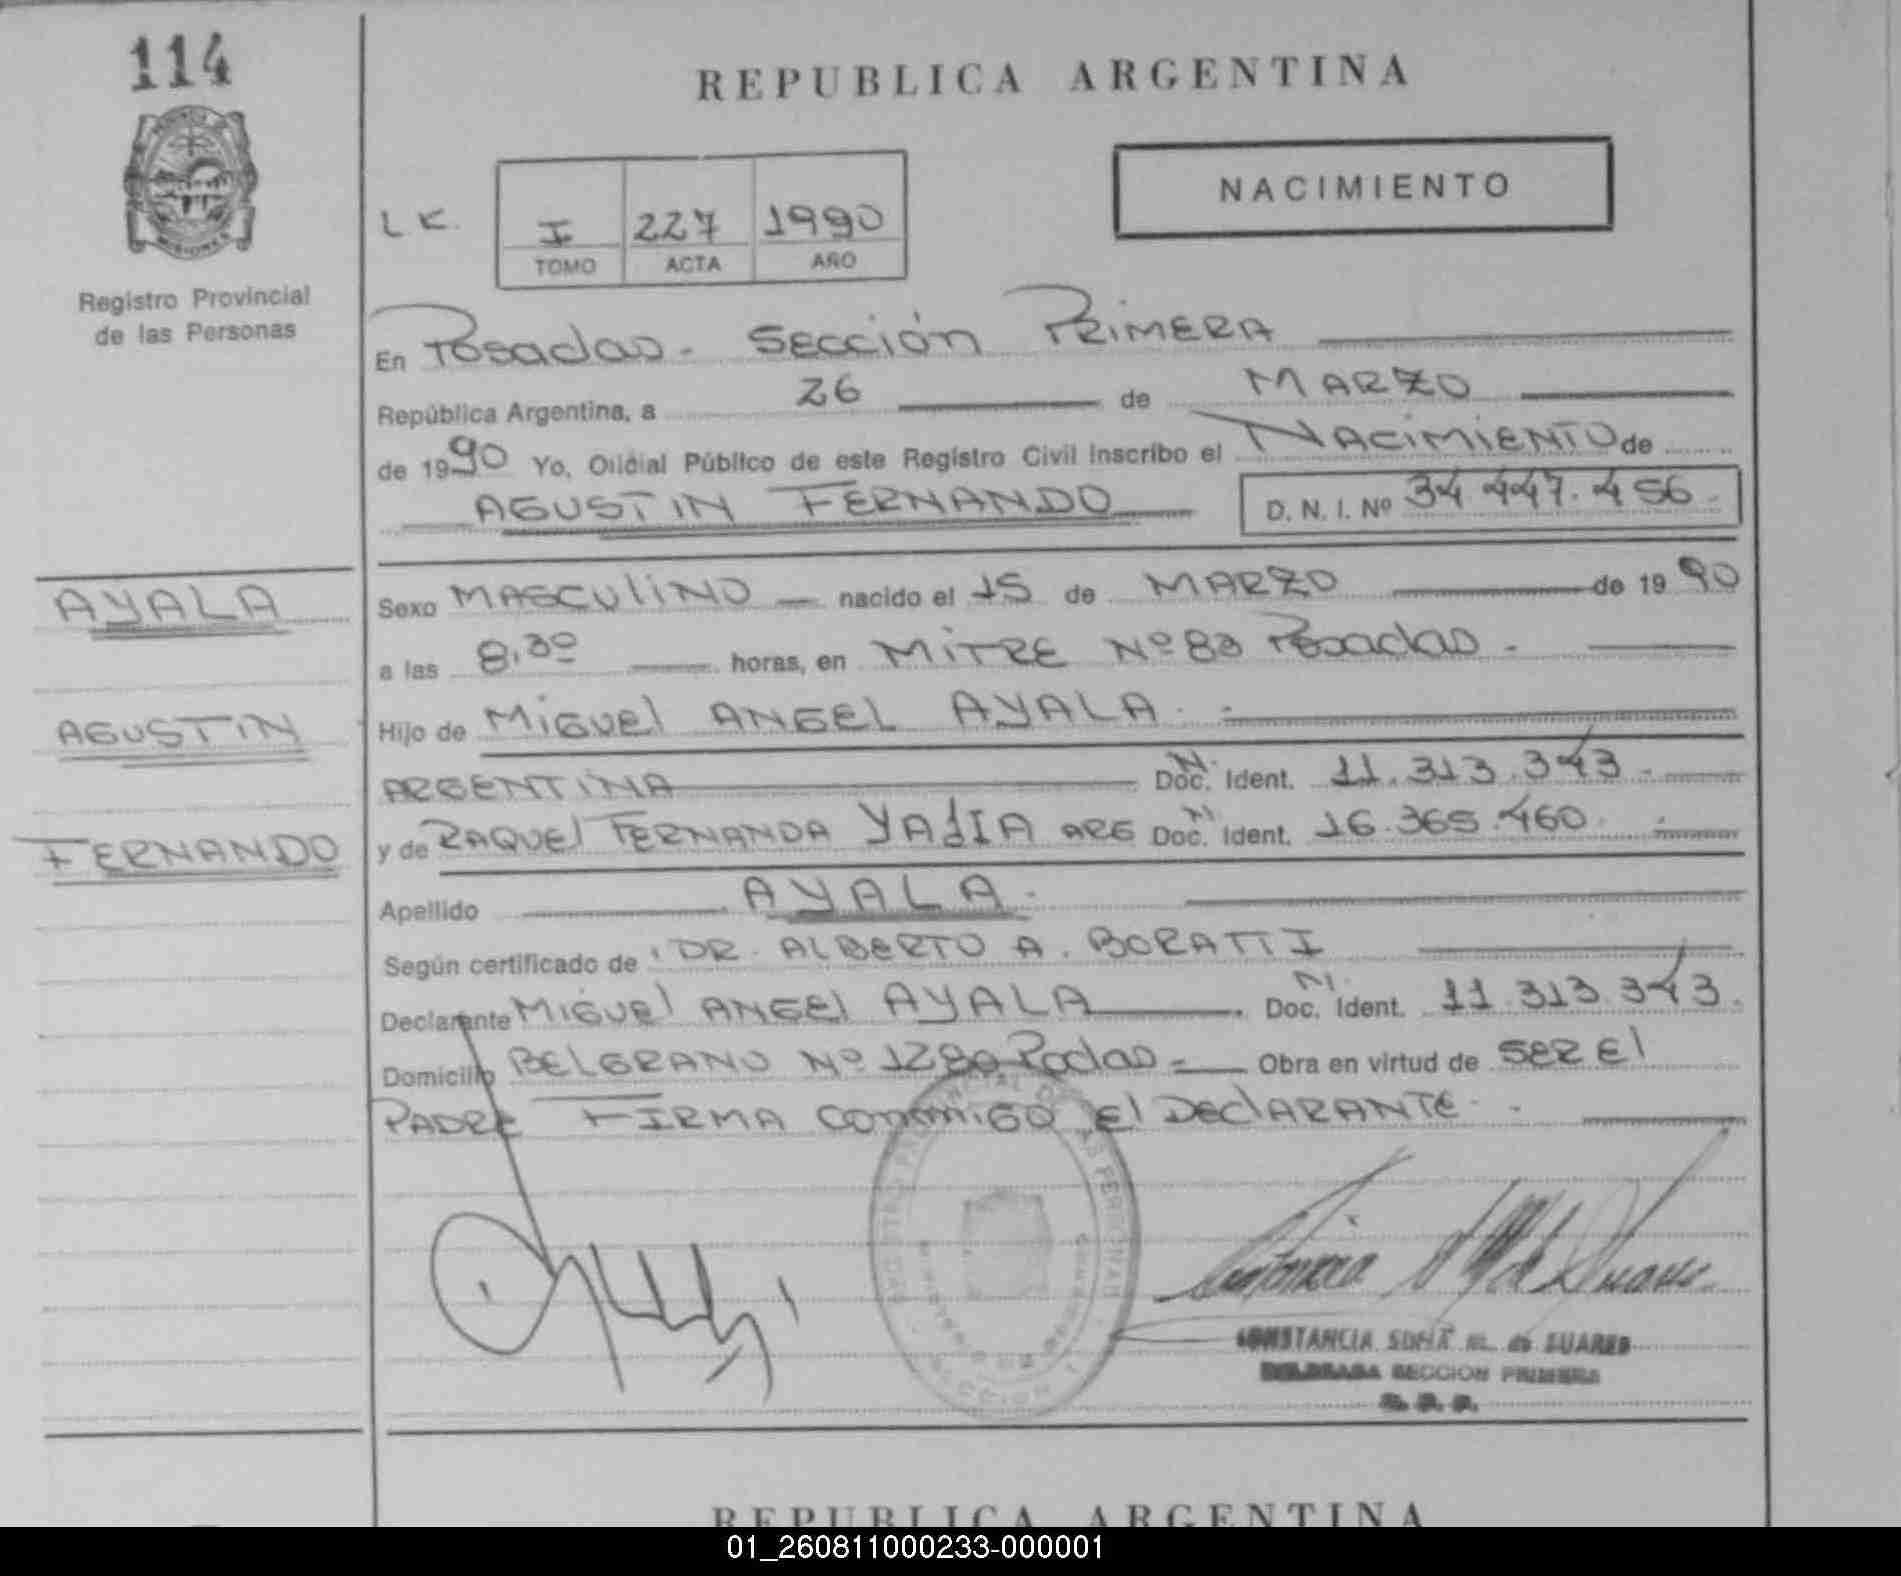 114
REPUBLICA ARGENTINA
NACIMIENTO
LK.
I 227 1990
TOMO ACTA AÑO
MISIONES
Registro Provincial
de las Personas
En Posadas. Sección Primera
República Argentina, a 26 de MARZO
de 1990 Yo, Oficial Público de este Registro Civil inscribo el NACIMIENTO de
AGUSTIN FERNANDO D. N. I. Nº 34.447.456.
AYALA
AGUSTIN
FERNANDO
Sexo MASCULINO nacido el 15 de MARZO de 1990
a las 8,30 horas, en MITRE Nº 83 Posadas.
Hijo de Miguel ANGEL AYALA.
ARGENTINA Doc. N. Ident. 11.313.343.
y de RAQUEL FERNANDA YADIA ARG Doc. N Ident. 16.365.460.
Apellido AYALA.
Según certificado de DR. ALBERTO A. BORATTI
Declarante MIGUEL ANGEL AYALA. Doc. N. Ident. 11.313.343.
Domicilio BELGRANO Nº 1280 Podas. Obra en virtud de SER El
PADRE FIRMA conmigo El DEClARANTE.
CONSTANCIA SOFIA M. de SUARES
DELEGADA SECCION PRIMERA
REPUBLICA ARGENTINA
01_260811000233-000001